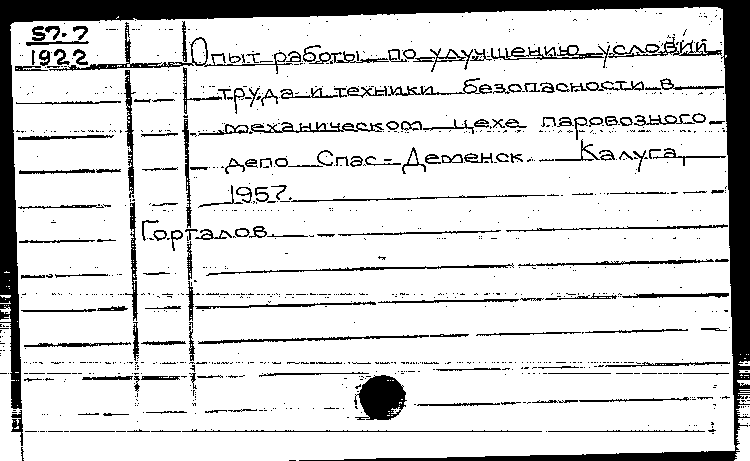 57-7
1922
Опыт работы по улучшению условий
труда и техники безопасности в
механическом цехе паровозного
депо Спас-Деменск. Калуга,
1957.
Горталов.